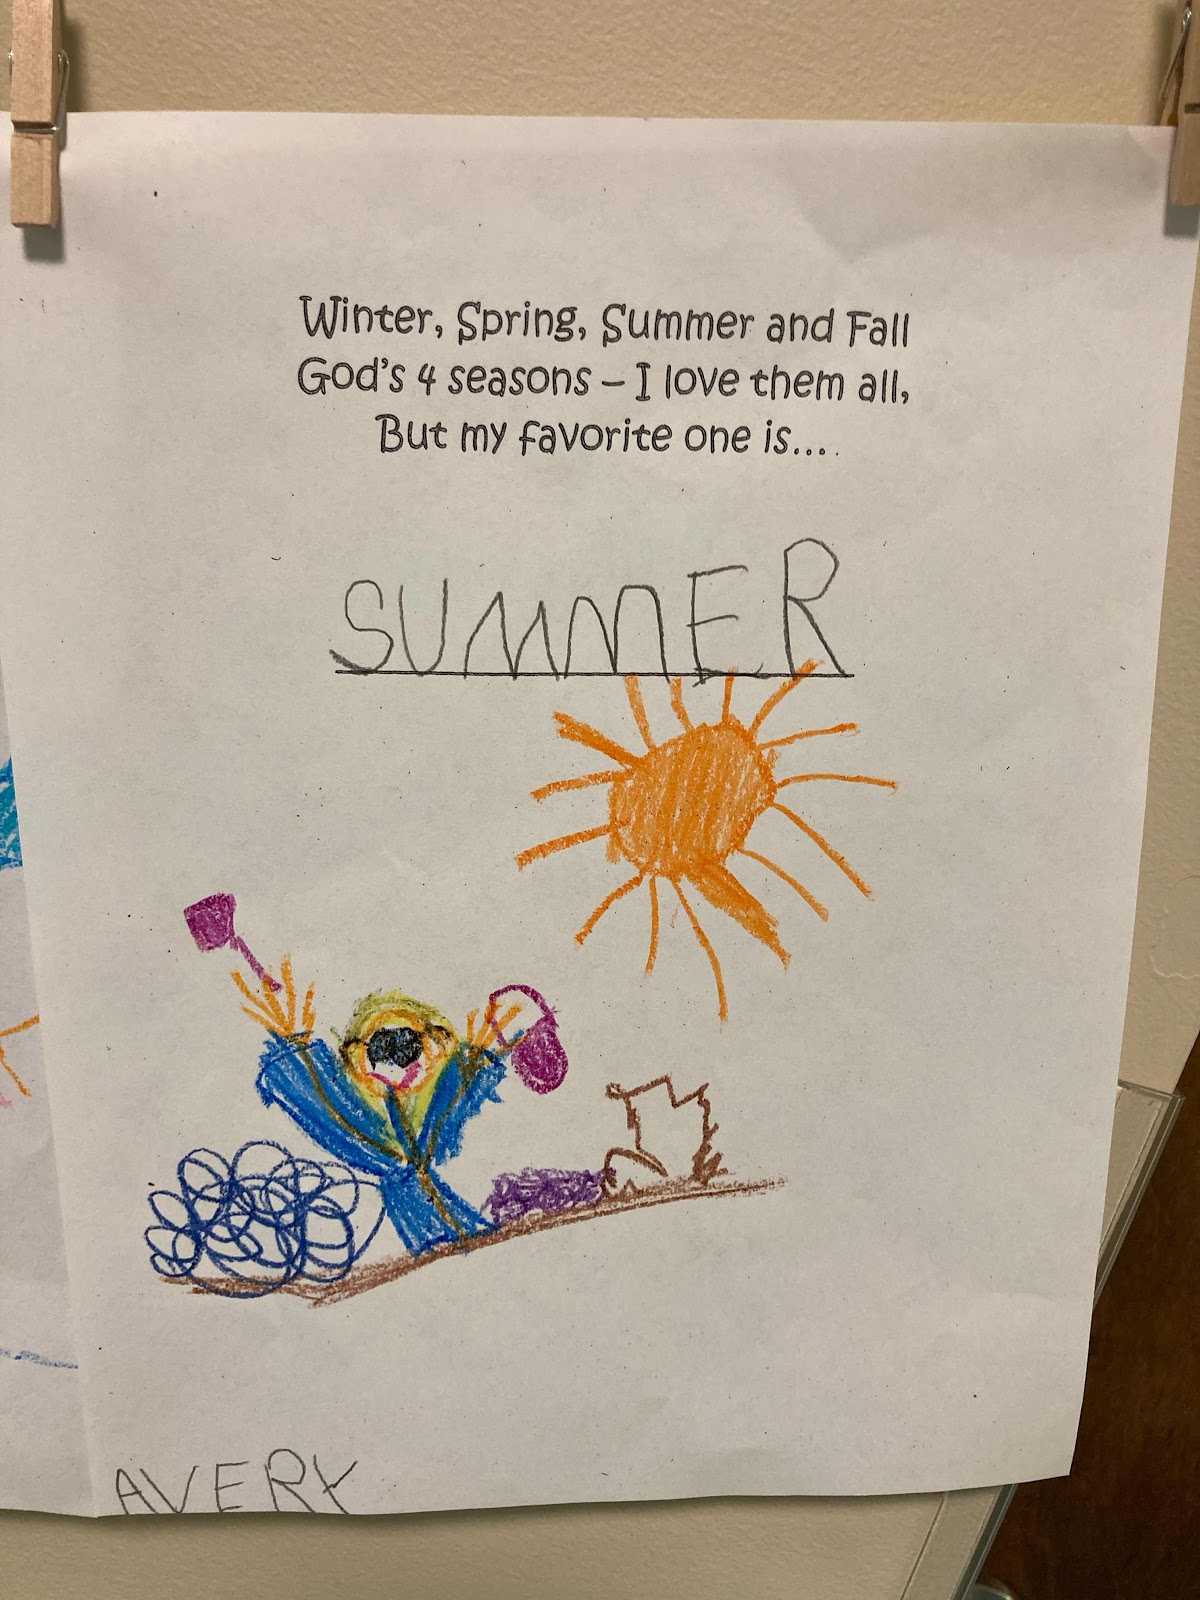 Winter, Spring, Summer and Fall
God's 4 seasons – I love them all,
But my favorite one is....
SUMMER
AVERY